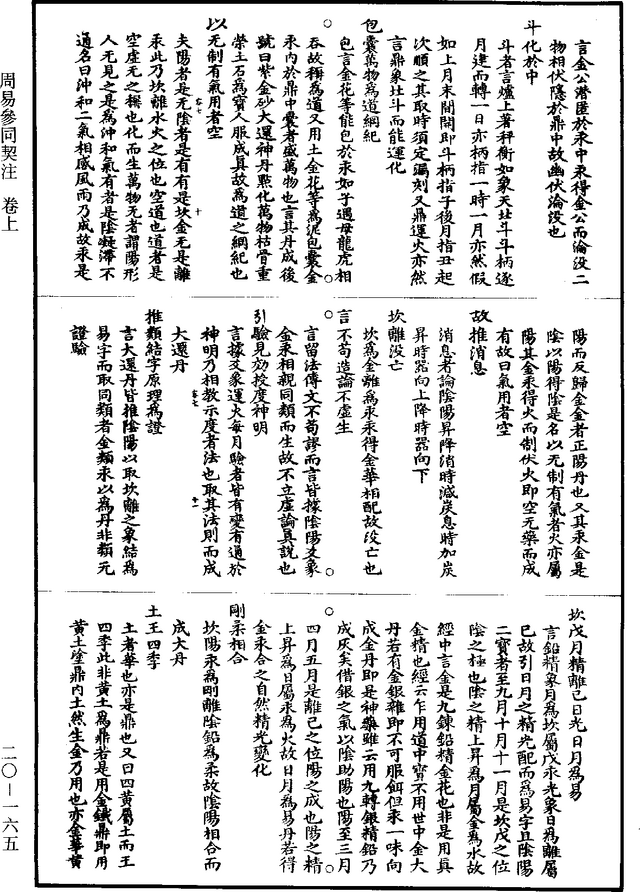 周易參同契注 卷上
言金公潛匿於汞中汞得金公而淪沒二
物相伏隱於鼎中故幽伏淪沒也
斗化於中
斗者言爐上著秤衡如象天北斗斗柄逐
月建而轉一日亦柄指一時一月亦然假
如上月末閒閒即斗柄指子後月指丑起
次順之其取時須定漏刻又鼎運火亦然
言鼎象北斗而能運化
包囊萬物為道綱紀
包言金花等能包於汞如子遇母龍虎相
吞故稱為道又用土金花等為泥包囊金
汞內於鼎中囊者盛萬物也言其丹成後
號曰紫金砂大還神丹點化萬物枯骨重
榮土石為寶人服成真故為道之綱紀也
以无制有氣用者空
夫陽者是无陰者是有有是坎金无是離
汞此乃坎離水火之位也空道也道者是
空虛无之稱也化而生萬物无者謂陽形
人无見之是為沖和氣有者是陰凝滯不
通名曰沖和二氣相感風而乃成故汞是
陽而反歸金金者正陽丹也又其汞金是
陰以陽得陰是名以无制有氣者火亦屬
陽其金汞得火而制伏火即空无藥而成
有故曰氣用者空
故推消息
消息者論陰陽昇降消時減炭息時加炭
昇時器向上降時器向下
坎離沒亡
坎為金離為汞汞得金華相配故沒亡也
言不苟造論不虛生
言留法傳文不苟謬而言皆據陰陽爻象
金汞相親同類而生故不立虛論真說也
引驗見効挍度神明
言據爻象運火每月驗者皆有變有通於
神明乃相教示度者法也取其法則而成
大還丹
推類結字原理為證
言大還丹皆推陰陽以取坎離之象結為
易字而取同類者金類汞以為丹非類元
證驗
坎戊月精離己日光日月為易
言鉛精象月為坎屬戊汞光象日為離屬
己故引日月之精光配而為易字且陰陽
二寶者至九月十月十一月是坎戊之位
陰之極也陰之精上昇為月屬金為水故
經中言金是九鍊鉛精金花也非是用真
金精也經云乍用道中寶不用世中金大
丹若有金銀雜即不可服餌但汞一味向
成金丹即是神藥雖云用九轉銀精鉛乃
成灰矣借銀之氣以陰助陽也陽至三月
四月五月是離己之位陽之成也陽之精
上昇為日屬汞為火故日月為易丹若得
金汞合之自然精光變化
剛柔相合
坎陽汞為剛離陰鉛為柔故陰陽相合而
成大丹
土王四季
土者華也亦是鼎也又曰四黃屬土而王
四季此非黃土為鼎若是用金鐵鼎即用
黃土塗鼎內土然生金乃用也亦金華黃
二〇-一六五